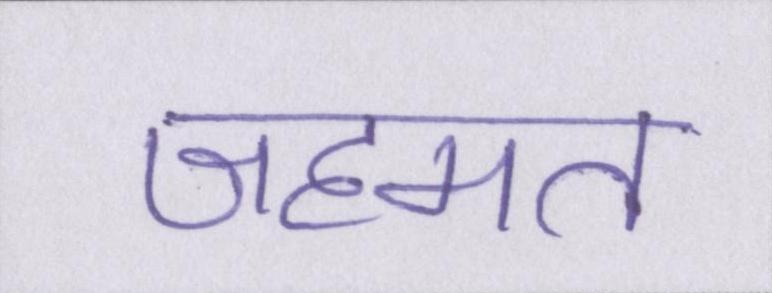 जहमत